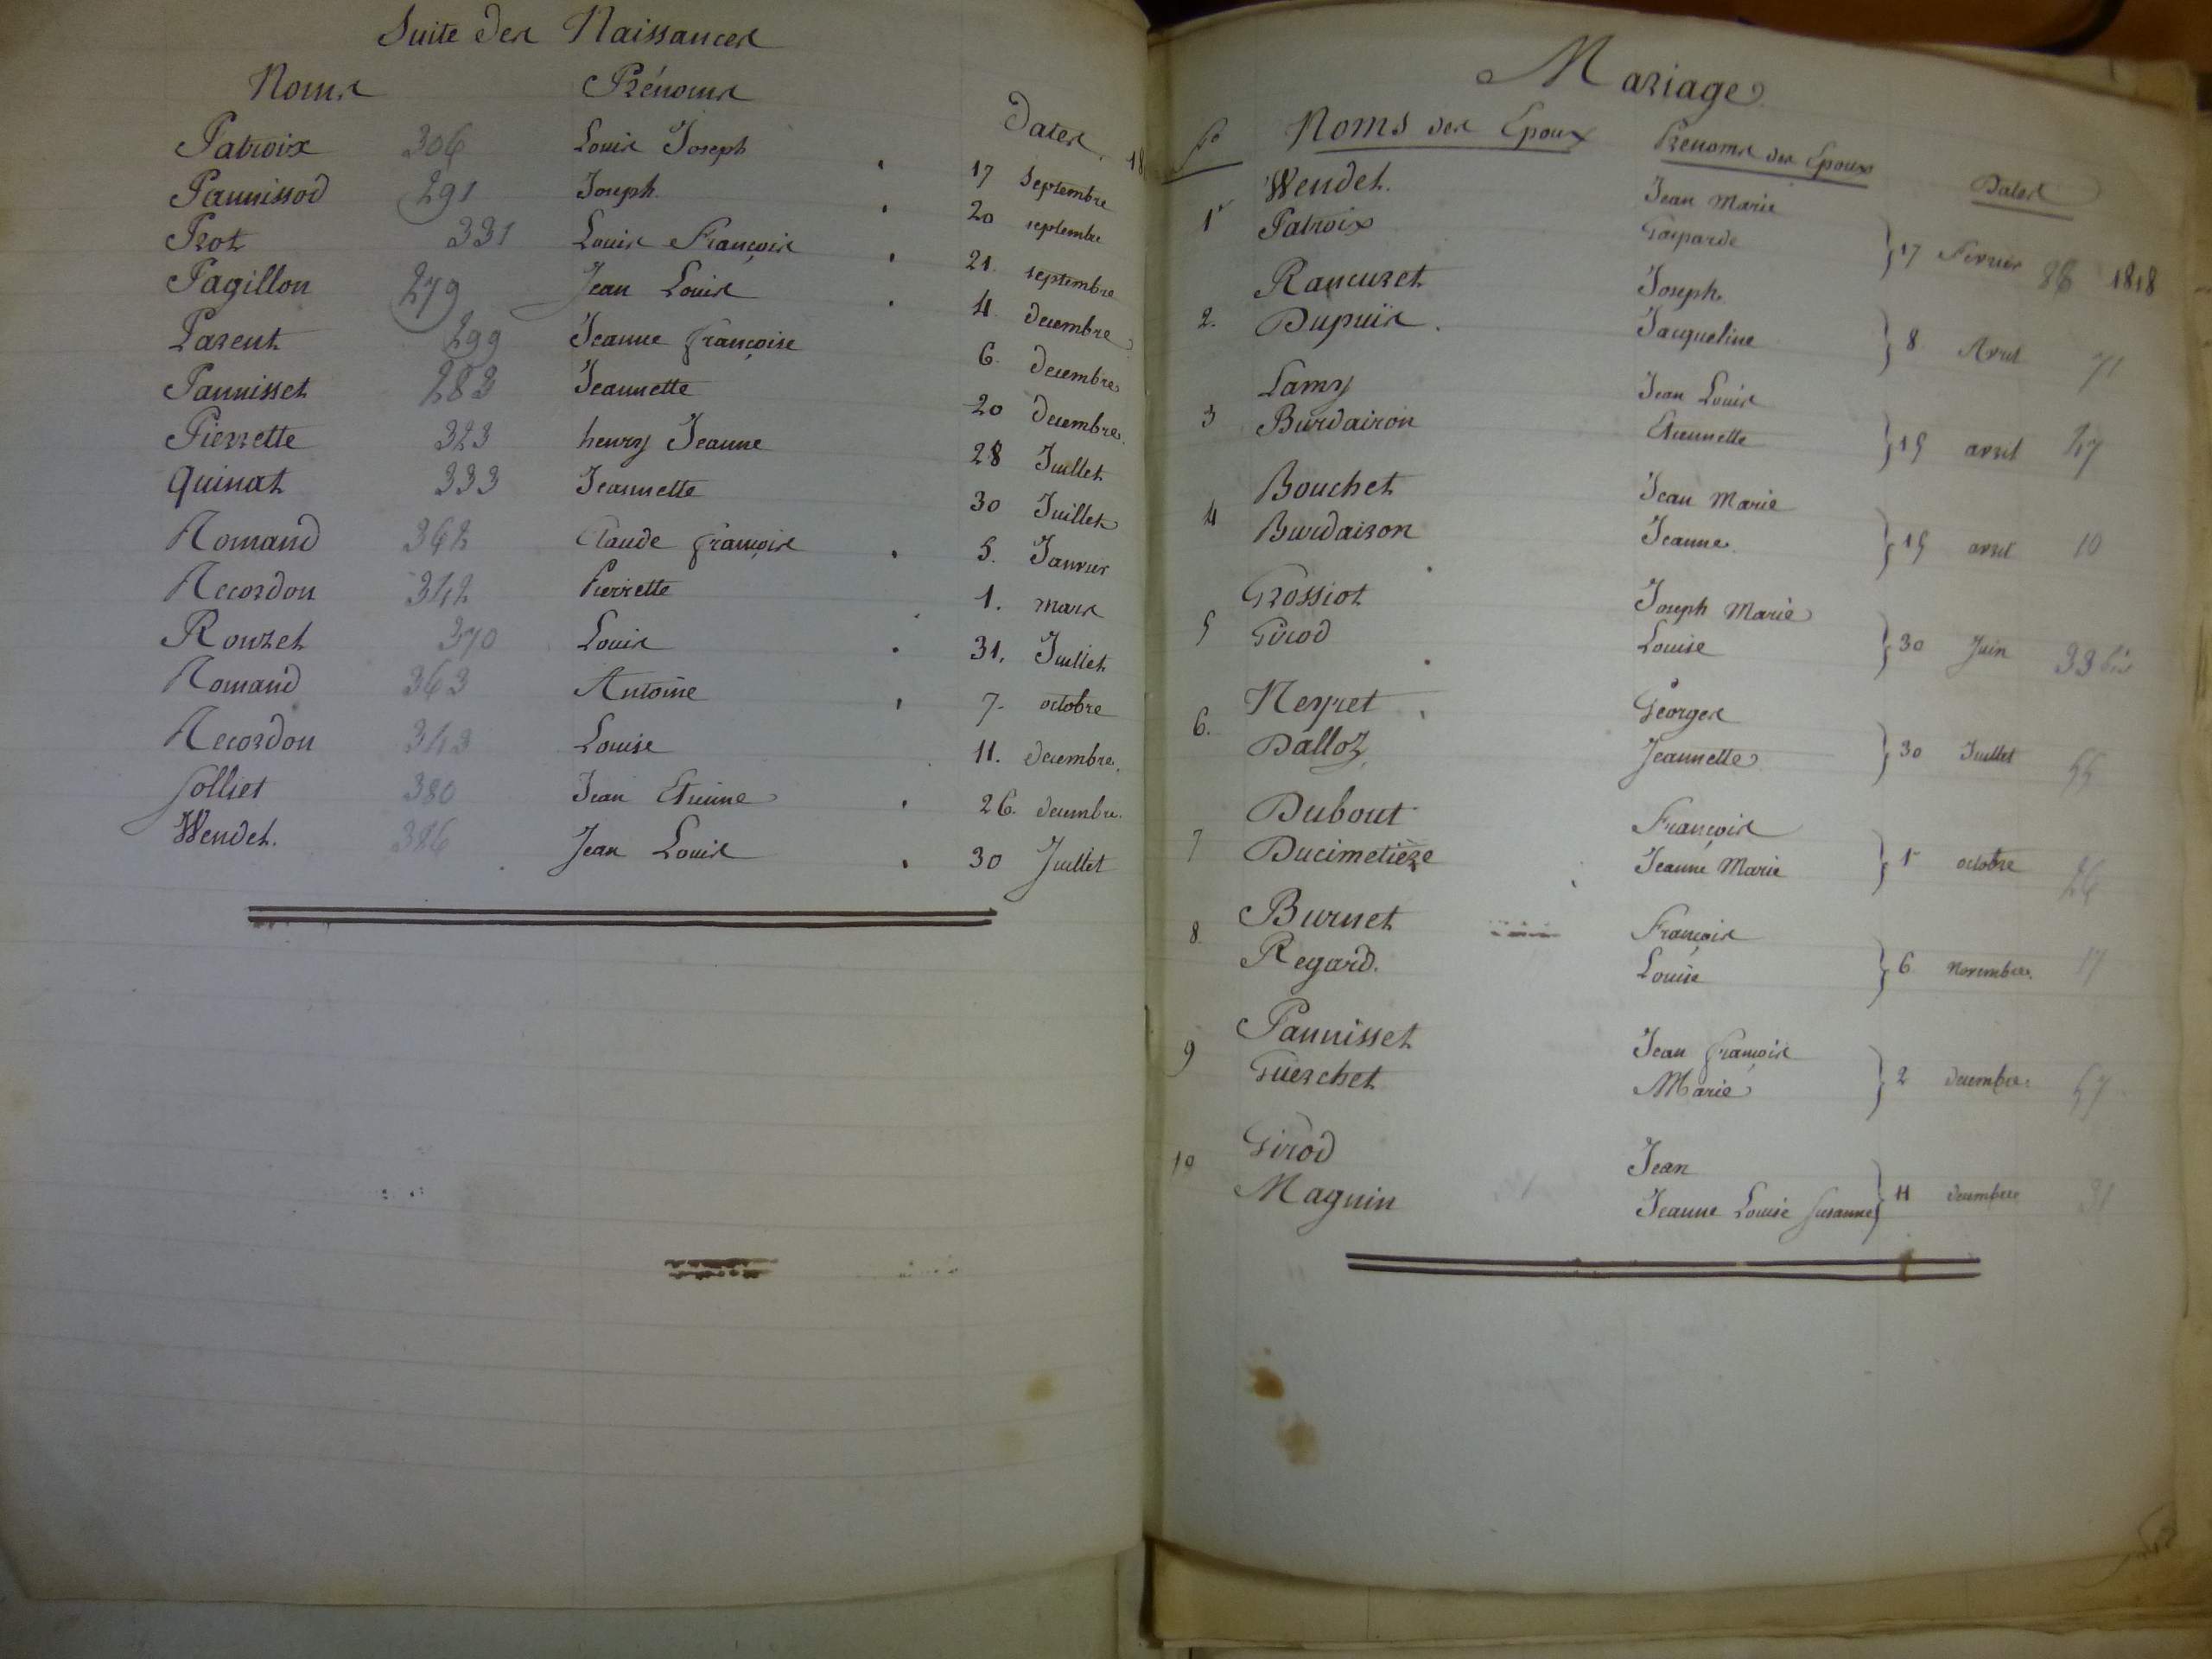 Suite des Naissances
Noms Prénoms Dates 18
Patroix 306 Louis Joseph 17 Septembre
Pannissod 291 Joseph 20 septembre
Prot 331 Louis François 21. septembre
Pagillon 279 Jean Louis 4. decembre
Parent 299 Jeanne françoise 6. decembre
Pannisset 283 Jeannette 20 decembre.
Pierrette 323 henry Jeanne 28 Juillet
Quinat 333 Jeannette 30 Juillet
Romand 362 Claude françois 5. Janvier
Recordon 342 Pierrette 1. mars
Rouzet 370 Louis 31. Juillet
Romand 363 Antoine 7. octobre
Recordon 343 Louise 11. decembre.
Solliet 380 Jean Etienne 26. decembre.
Wendet. 386 Jean Louis 30 Juillet
Mariage
No Noms des Epoux Prenoms des Epoux Dates
1r Wendet. Jean Marie
Patroix Gasparde } 17 Fevrier 86 1818
Rancuret Joseph
2. Dupuis. Jacqueline } 8 Avril 71
Lamy Jean Louis
3 Burdairon Etiennette } 15 avril 47
Bouchet Jean Marie
4 Burdairon Jeanne } 15 avril 10
Grossiot Joseph Marie
5 Girod Louise } 30 Juin 33 bis
Neyret George
6. Dalloz Jeannette } 30 Juillet 55
Dubout François
7 Ducimetière Jeanne Marie } 1r octobre 26
Burnet François
8 Regard. Louise } 6 Novembre. 17
Pannisset Jean françois
9 Guerchet Marie } 2 decembre 57
Girod Jean
10 Magnin Jeanne Louise Susanne } 11 decembre 31